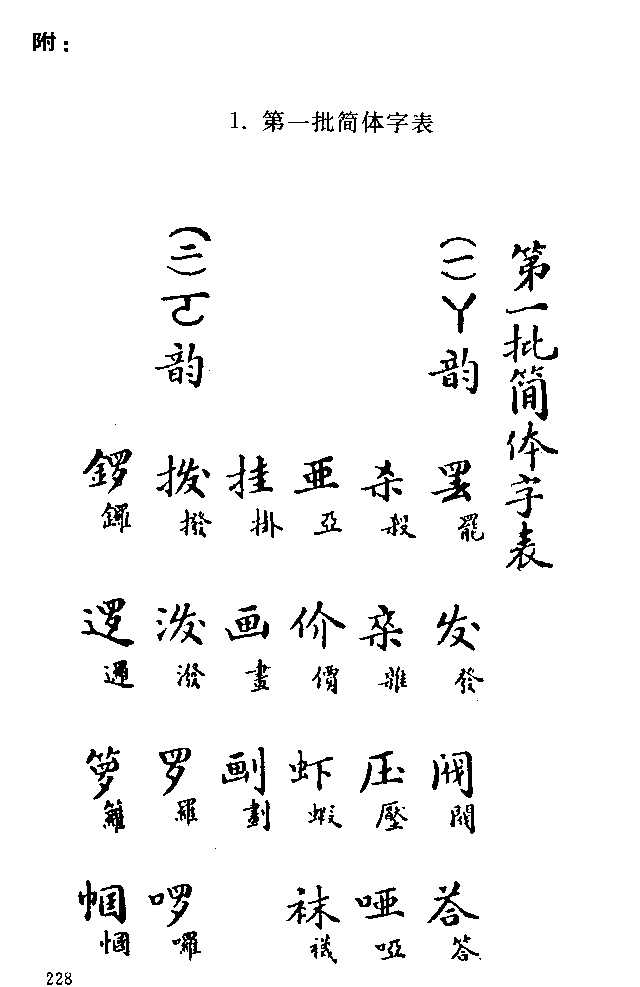 附：
1. 第一批简体字表
第一批简体字表
(一)ㄚ韵
罢 罷 发 發 阀 閥 荅 答
杀 殺 杂 雜 压 壓 哑 啞
亚 亞 价 價 虾 蝦 袜 襪
挂 掛 画 畫 㓰 劃
(二)ㄛ韵
拨 撥 泼 潑 罗 羅 啰 囉
锣 鑼 逻 邏 箩 籮 帼 幗
228